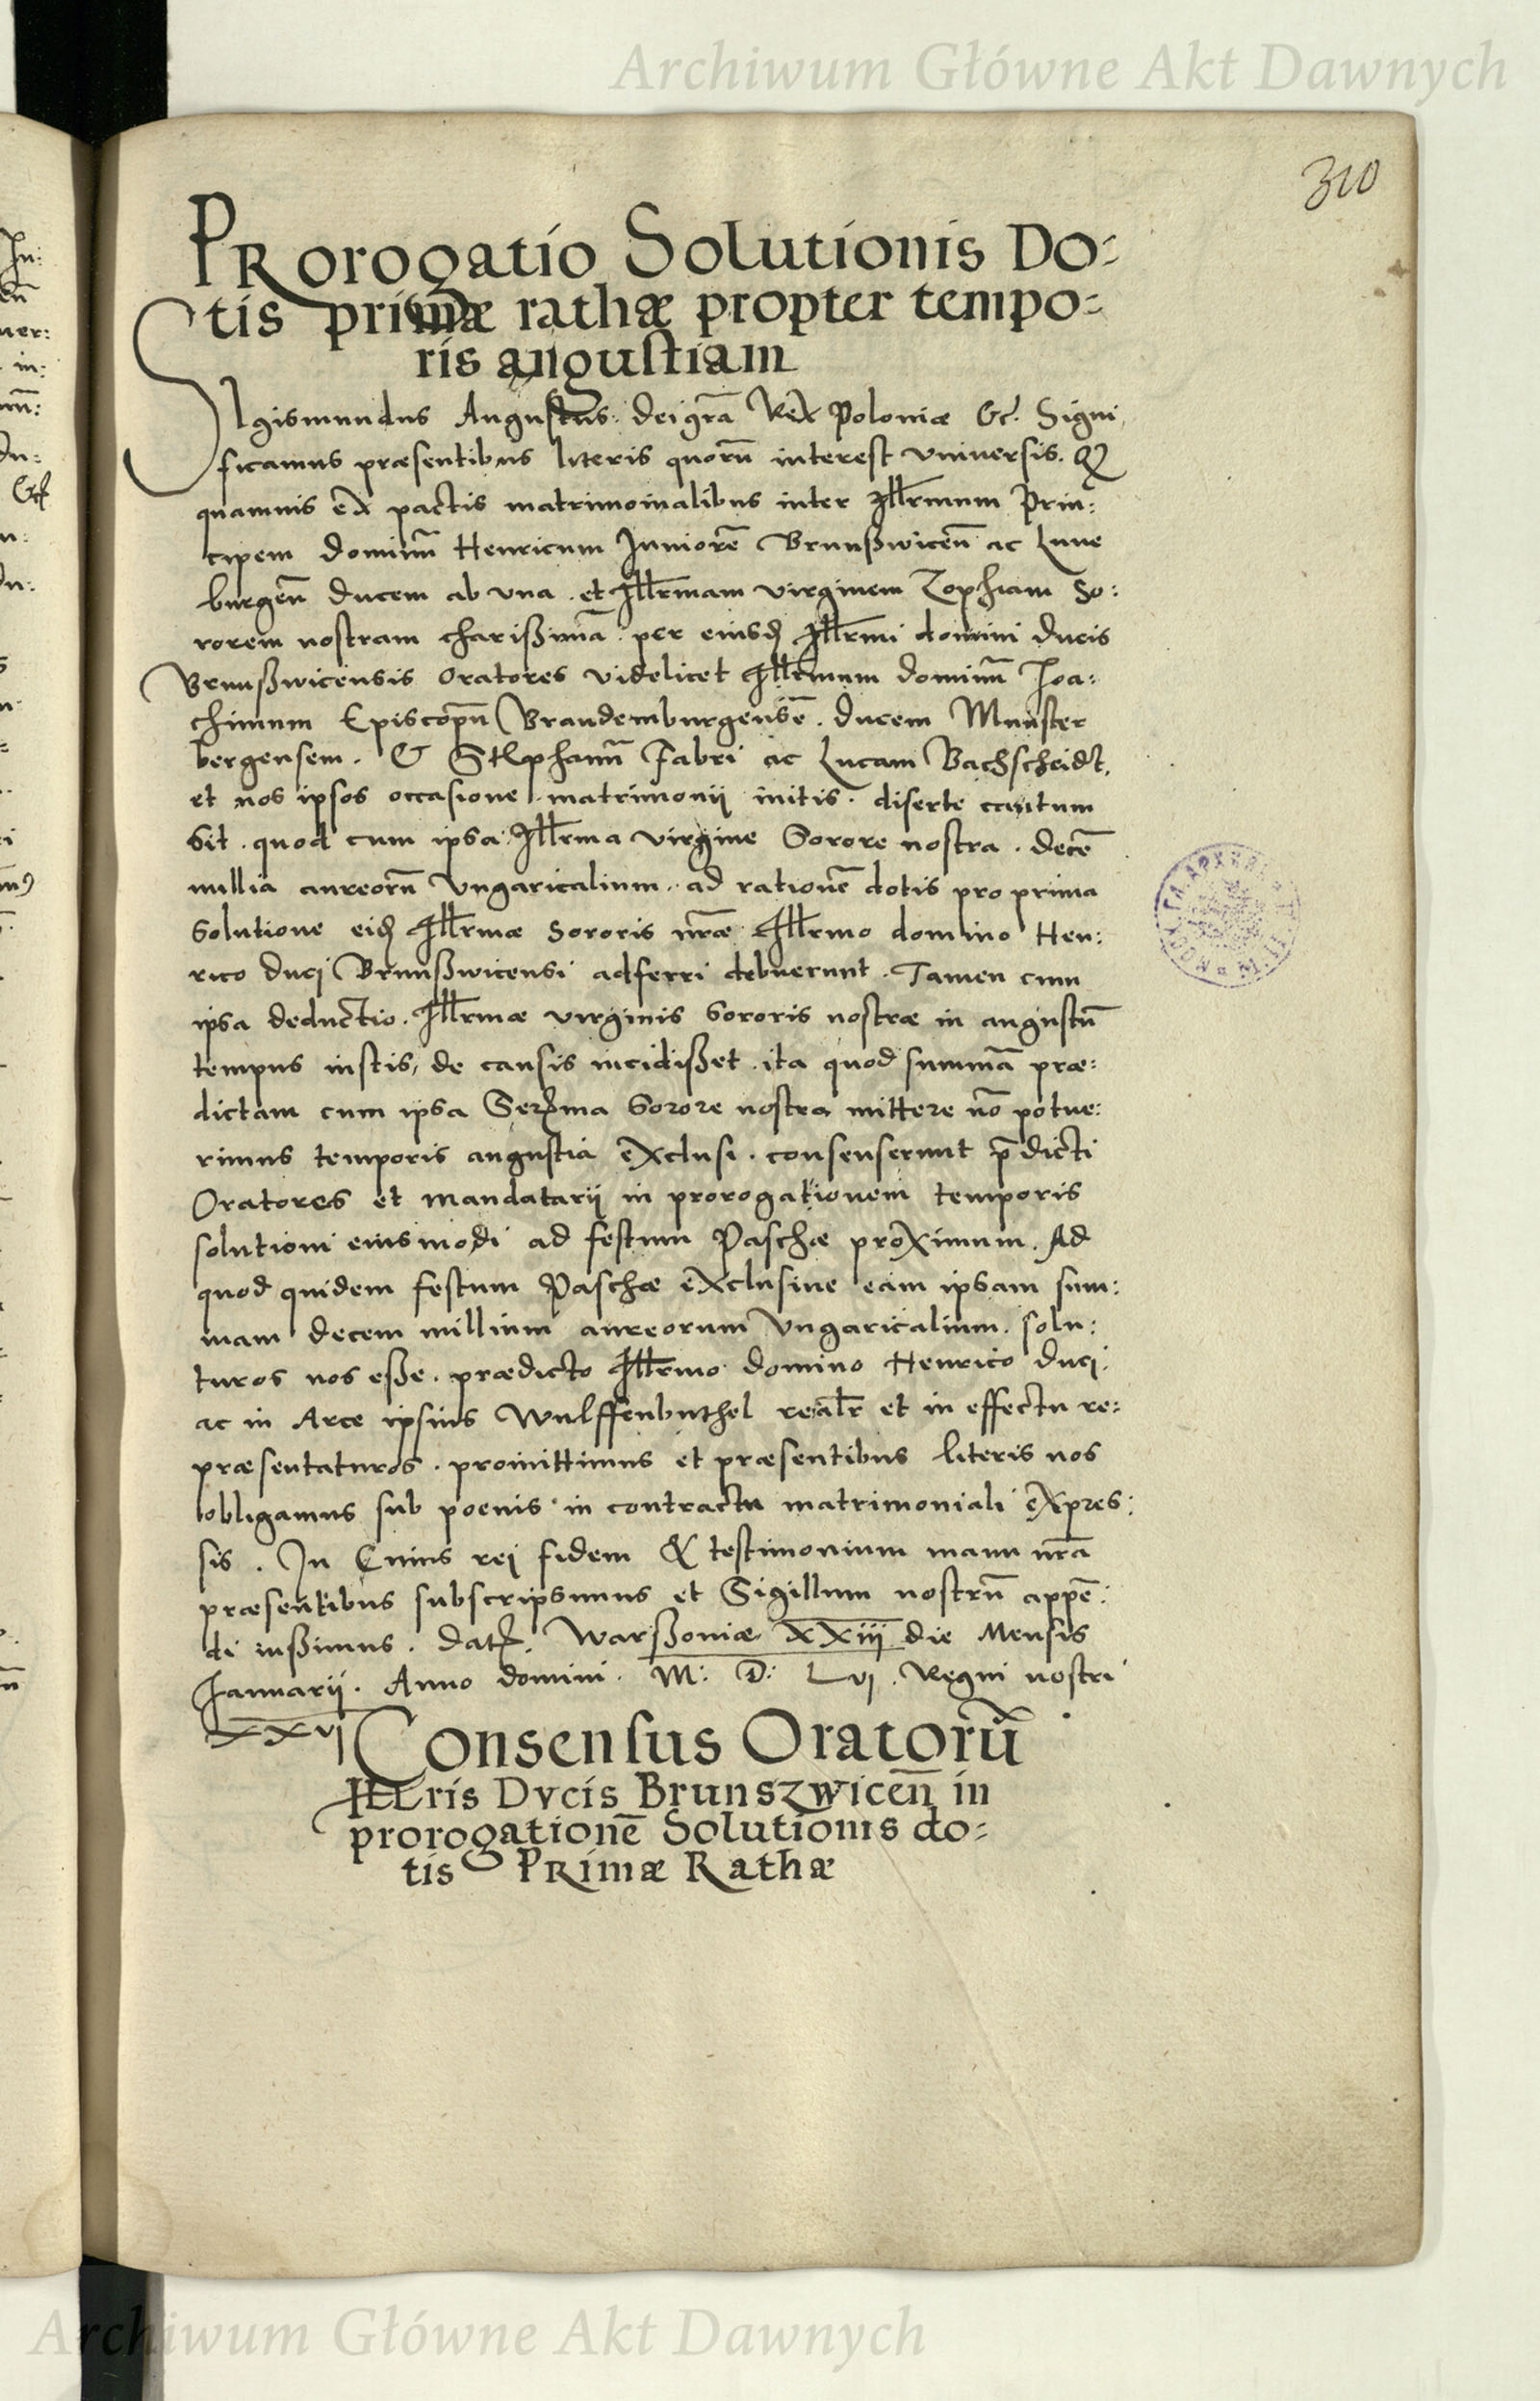 Archiwum Główne Akt Dawnych
310
PRorogatio Solutionis Do:
tis primæ rathæ propter tempo:
ris angustiam
SIgismundus Augustus dei grã Rex Poloniæ &c. Signi
ficamus præsentibus literis quorũ interest vniuersis. Q
quamuis ex pactis matrimonialibus inter Illrmum Prin:
cipem dominũ Henricum Iuniorẽ Brunßwiceñ ac Lune
burgeñ ducem ab vna . et Illrmam virginem Zophiam So:
rorem nostram charißimã . per eiusd Illrmi domini ducis
Brunßwicensis oratores videlicet Illrmum dominũ Ioa:
chimum Episcopũ Brandemburgensẽ . ducem Munster
bergensem . & Stephanũ Fabri ac Lucam Bachscheidt,
et nos ipsos occasione matrimonii initis . diserte cautum
sit . quod cum ipsa Illrma virgine Sorore nostra . decẽ
millia aureorũ Vngaricalium . ad rationẽ dotis pro prima
solutione eid Illrmæ Sororis nrãe Illrmo domino Hen:
rico duci Brunßwicensi adferri debuerunt . Tamen cum
ipsa deductio . Illrmæ virginis Sororis nostræ in angustũ
tempus iustis, de causis incidißet . ita quod summã præ:
dictam cum ipsa Serma Sorore nostra mittere nõ potue:
rimus temporis angustia exclusi . consenserunt p̄dicti
Oratores et mandatarii in prorogationem temporis
solutioni eiusmodi ad festum Paschæ proximum . Ad
quod quidem festum Paschæ exclusiue eam ipsam sum:
mam decem millium aureorum Vngaricalium . solu:
turos nos eße . prædicto Illrmo domino Henrico duci.
ac in Arce ipsius Wulffenbuthel realr et in effectu re:
præsentaturos . promittimus et præsentibus literis nos
obligamus sub poenis in contractu matrimoniali expres:
sis . In Cuius rei fidem & testimonium manu nrã
præsentibus subscripsimus et Sigillum nostrũ appẽ:
di iußimus . dat . Warßouiæ XXiii die Mensis
Ianuarii . Anno domini . M: D: Lvi . Regni nostri
xxvi
Consensus Oratorũ
Illris Dvcis Brunszwiceñ in
prorogationẽ Solutionis do:
tis PRimæ Rathæ
Archiwum Główne Akt Dawnych